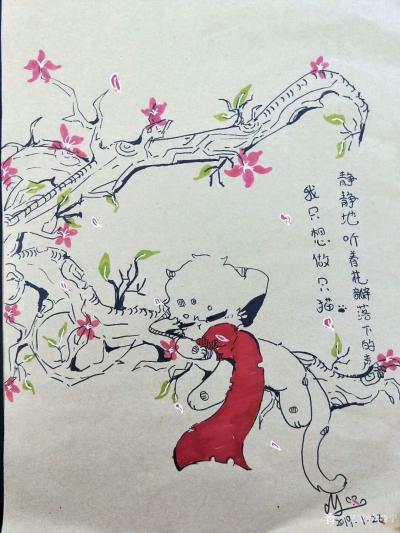 静静地听着花瓣落下的声
我只想做只猫